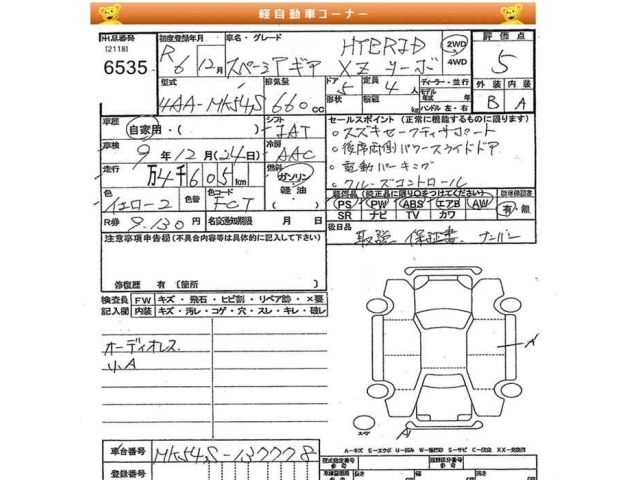 軽自動車コーナー
出品番号 初度登録年月 車名・グレード 評価点
[2118] R6年12月 スペーシアギア HYBRID XZターボ 2WD 4WD 5
6535
型式 排気量 ドア 定員 ディーラー・並行 外装 内装
4AA-MK54S 660cc 5 4人 モデル年式 年 B A
形状 積載 kg ハンドル 左・右
車歴 シフト セールスポイント(正常に機能するものに限ります)
自家用・( ) IAT ○スズキセーフティサポート
車検 冷房 ○後席両側パワースライドドア
9年12月(24日) AAC ○電動パーキング
走行 燃料 ○クルーズコントロール
万4千605km ガソリン
軽油
色 色替 色コード 装備品(純正品に限り○をつけてください) 新車保証書
イエロー2 FCT PS PW ABS エアB AW 有・無
SR ナビ TV カワ
R券 9,130円 名変通知期限 月 日 後日品
取説 保証書 ナンバー
注意事項申告欄(不具合内容等は具体的に記入して下さい)
修復歴 有〔箇所 〕
検査員記入欄 FW キズ・飛石・ヒビ割・リペア跡・×要
内装 キズ・汚レ・コゲ・穴・スレ・キレ・破レ
オーディオレス
小A
A
A
A-キズ E-エクボ U-凹み W-補修跡 S-サビ C-腐食 XX-交換済
車台番号 MK54S-137778
登録番号